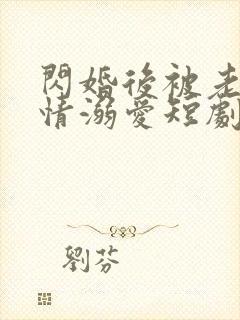 閃婚後被老
情溺愛短劇
劉芬